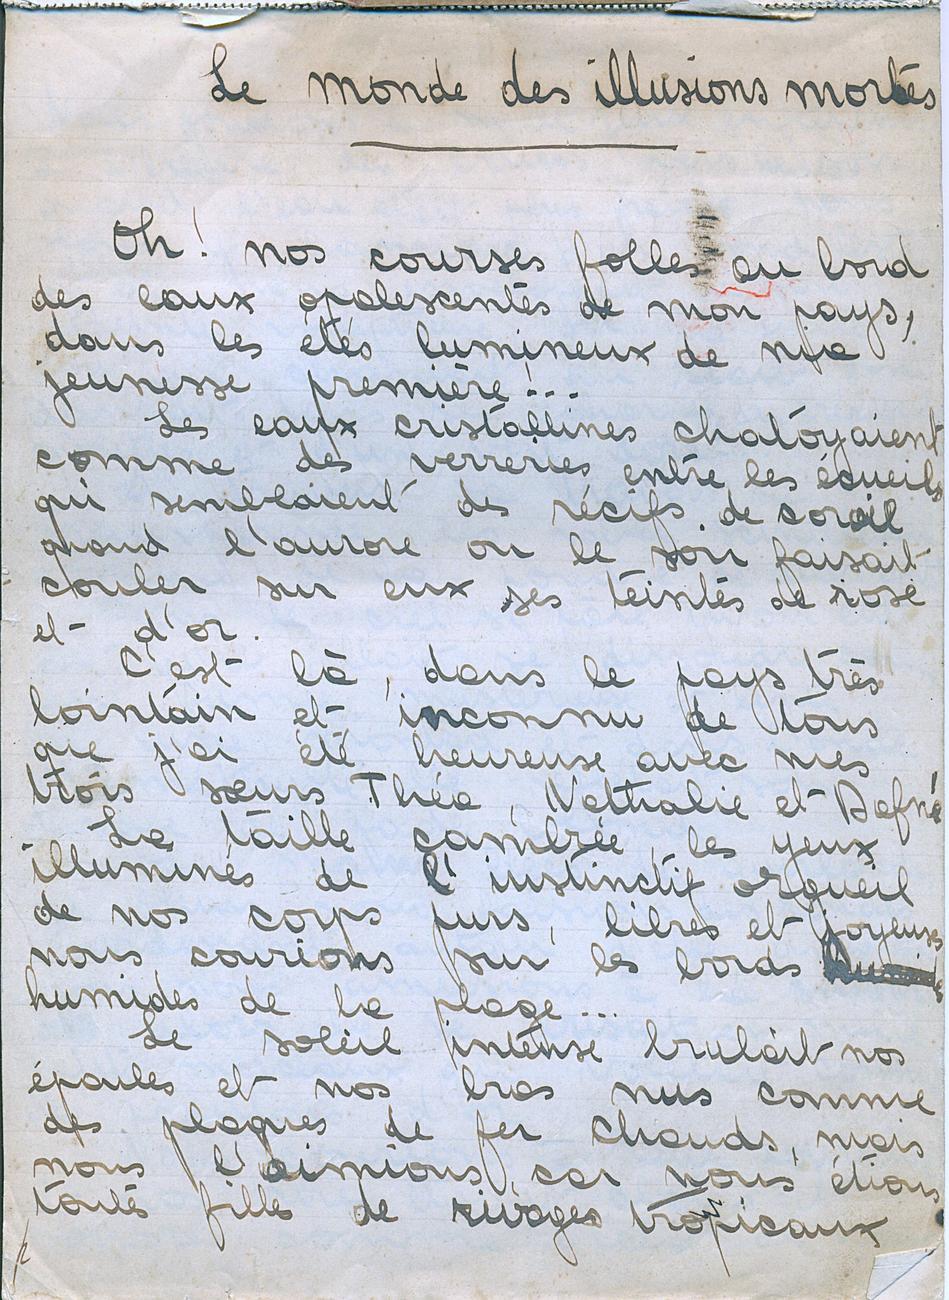 Le monde des illusions mortes
Oh! nos courses folles au bord
des eaux opalescentes de mon pays,
dans les étés lumineux de ma
jeunesse première!...
Les eaux cristallines chatoyaient
comme des verreries entre les écueils
qui semblaient des récifs de corail
quand l'aurore ou le soir faisait
couler sur eux ses teintes de rose
et d'or.
C'est là, dans le pays très
lointain et inconnu de tous
que j'ai été heureuse avec mes
trois sœurs Théa, Nathalie et Dafné
La taille cambrée, les yeux
illuminés de l'instinctif orgueil
de nos corps purs, libres et joyeuses
nous courions sur les bords
humides de la plage...
Le soleil intense brulait nos
épaules et nos bras nus comme
des plaques de fer chauds, mais
nous l'aimions, car nous étions
toute fille de rivages tropicaux